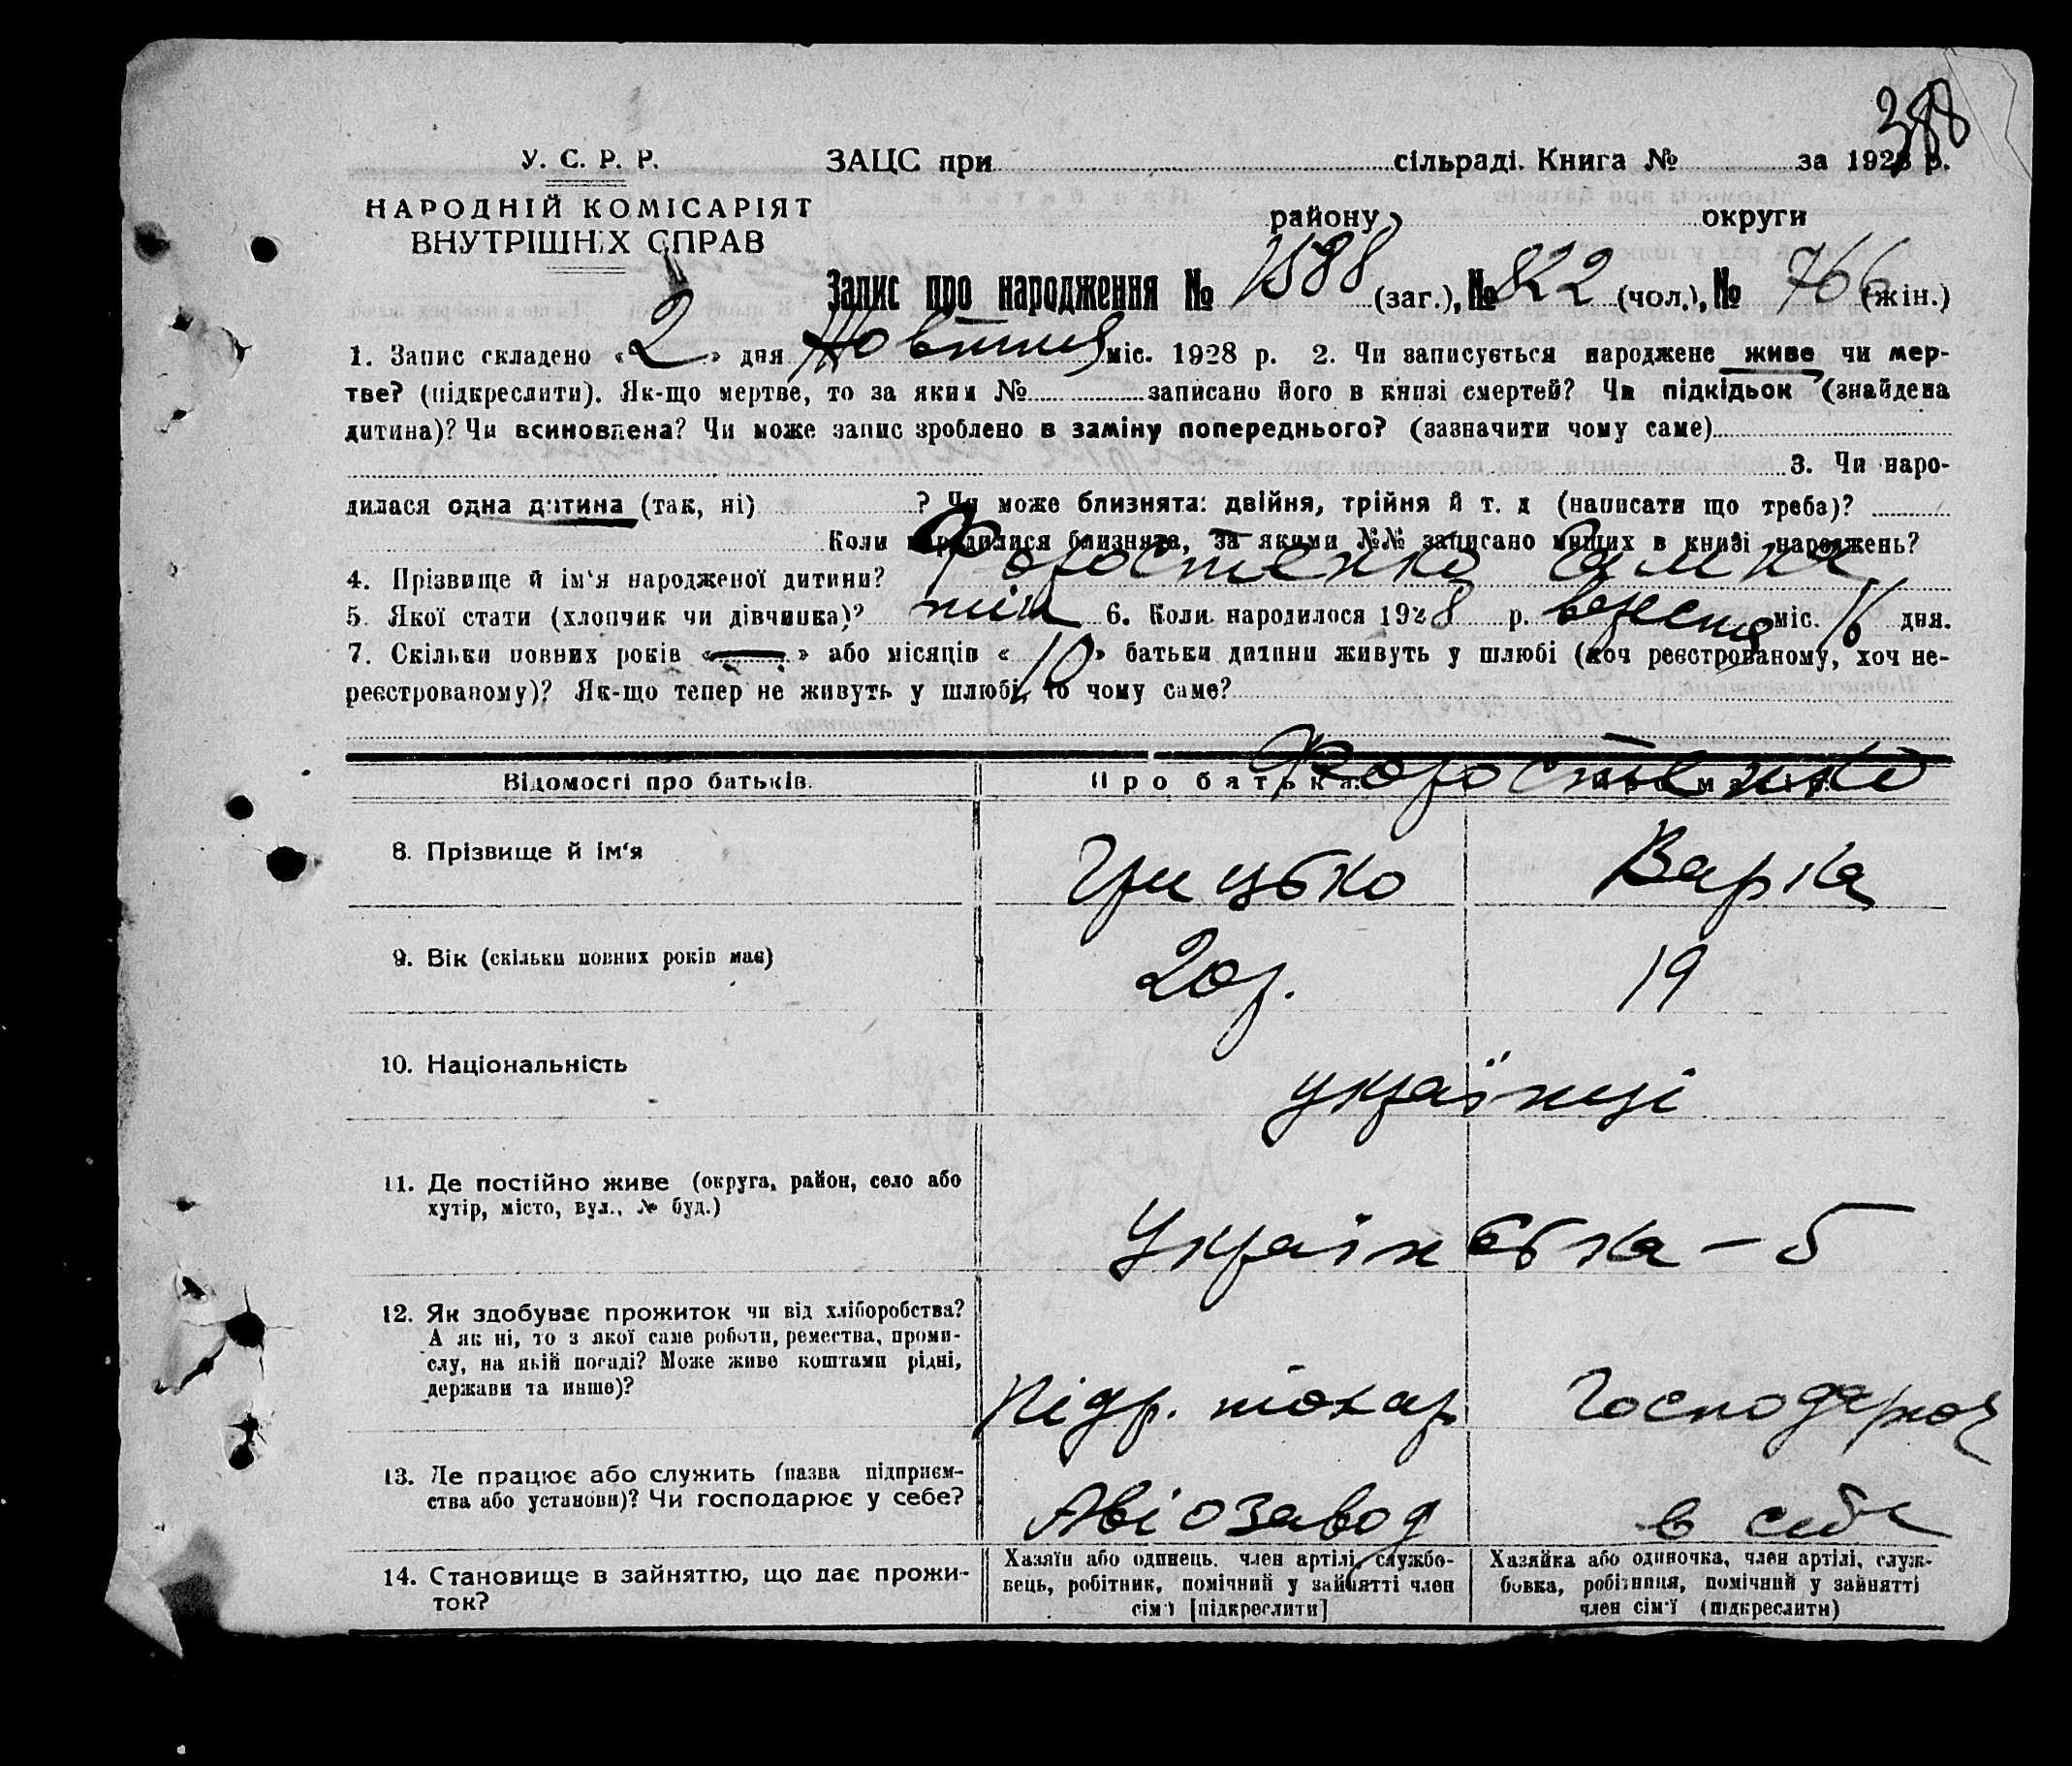 388
У. С. Р. Р. ЗАЦС при сільраді. Книга № за 1928 р.
НАРОДНІЙ КОМІСАРІЯТ
ВНУТРІШНІХ СПРАВ
району округи
Запис про народження № 1588 (заг.), № 822 (чол.), № 766 (жін.)
1. Запис складено «2» дня Жовтня міс. 1928 р. 2. Чи записується народжене живе чи мер-
тве? (підкреслити). Як-що мертве, то за яким № записано його в книзі смертей? Чи підкідьок (знайдена
дитина)? Чи всиновлена? Чи може запис зроблено в заміну попереднього? (зазначити чому саме)
3. Чи наро-
дилася одна дитина (так, ні) ? Чи може близнята: двійня, трійня й т. д (написати що треба)?
Коли народилися близнята, за якими №№ записано инших в книзі народжень?
4. Прізвище й ім'я народженої дитини? Форостенко
5. Якої стати (хлопчик чи дівчинка)? 6. Коли народилося 1928 р. вересня міс. 16 дня.
7. Скільки повних років « » або місяців «10» батьки дитини живуть у шлюбі (хоч реєстрованому, хоч не-
реєстрованому)? Як-що тепер не живуть у шлюбі, то чому саме?
Форостенко
Відомості про батьків. Про батька. Про матір.
8. Прізвище й ім'я Грицько Варка
9. Вік (скільки повних років має) 20 р. 19
10. Національність українці
11. Де постійно живе (округа, район, село або
хутір, місто, вул., № буд.)
Українська - 5
12. Як здобуває прожиток чи від хліборобства?
А як ні, то з якої саме роботи, ремества, проми-
слу, на якій посаді? Може живе коштами рідні,
держави та инше)?
Підр. токар Господарює
13. Де працює або служить (назва підприєм-
ства або установи)? Чи господарює у себе?
Авіозавод в себе
14. Становище в зайняттю, що дає прожи-
ток?
Хазяїн або одинець, член артілі, службо-
вець, робітник, помічний у зайнятті член
сім'ї [підкреслити]
Хазяйка або одиночка, член артілі, служ-
бовка, робітниця, помічний у зайнятті
член сім'ї (підкреслити)